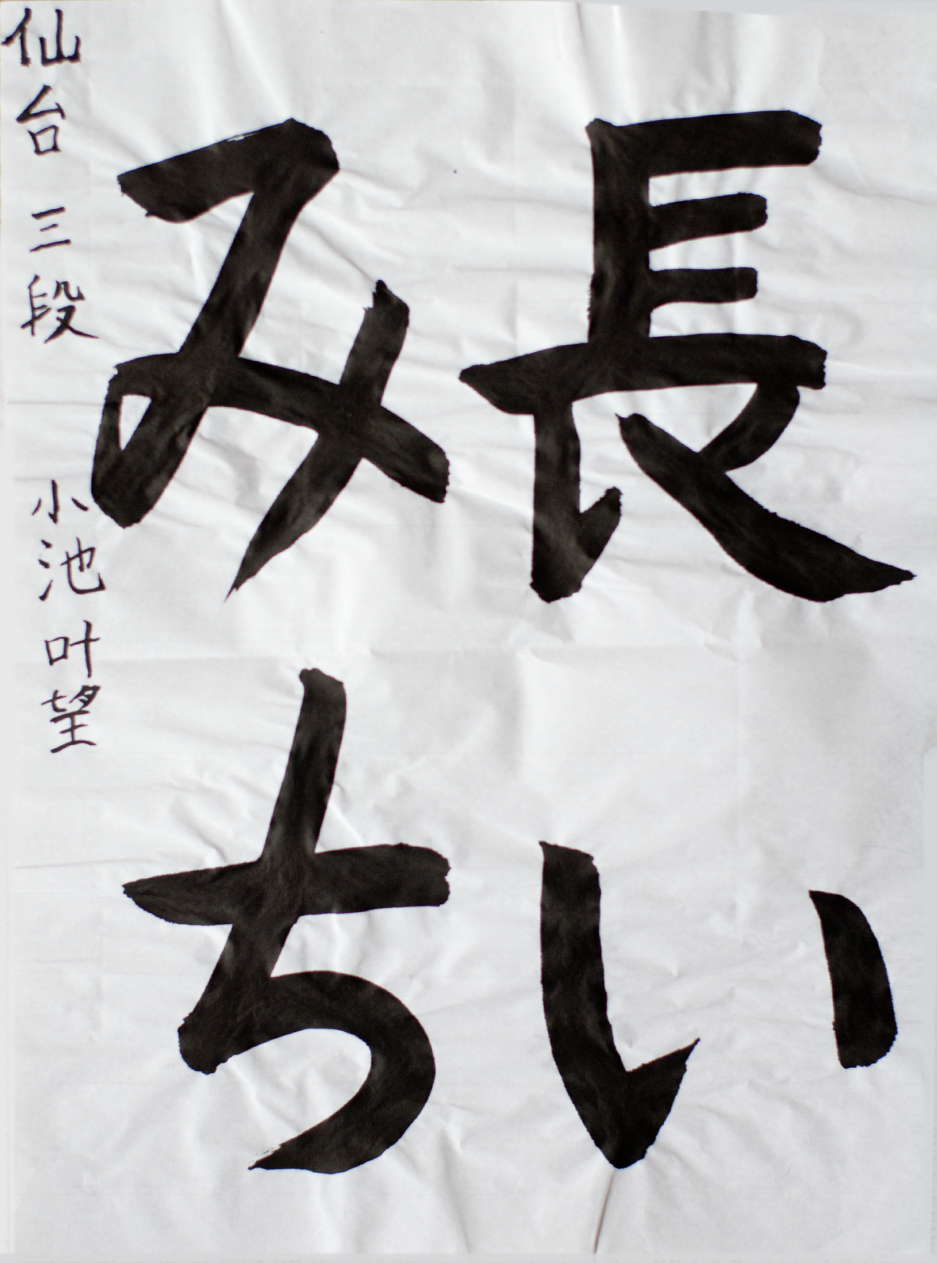 長い
みち
仙台 三段 小池叶望